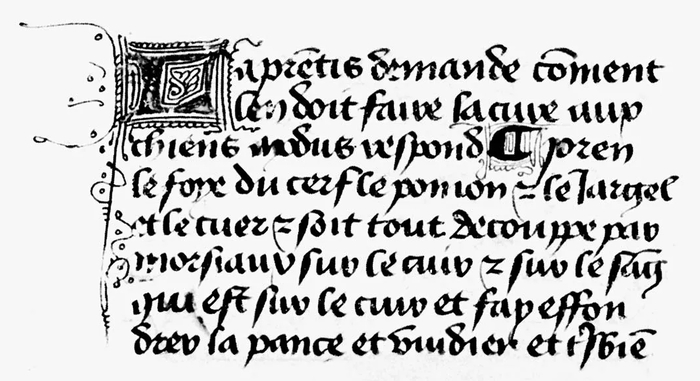 Laprētis demande cōment
len doit faire la cure aux
chiens modus respond Pren
le foye du cerf le pomon & le Jargel
et le cuer & soit tout decouppe par
morsiaux sur le cuir & sur le sāg
qui est sur le cuir et fay effon
drer la pance et vuidier et tsbiē